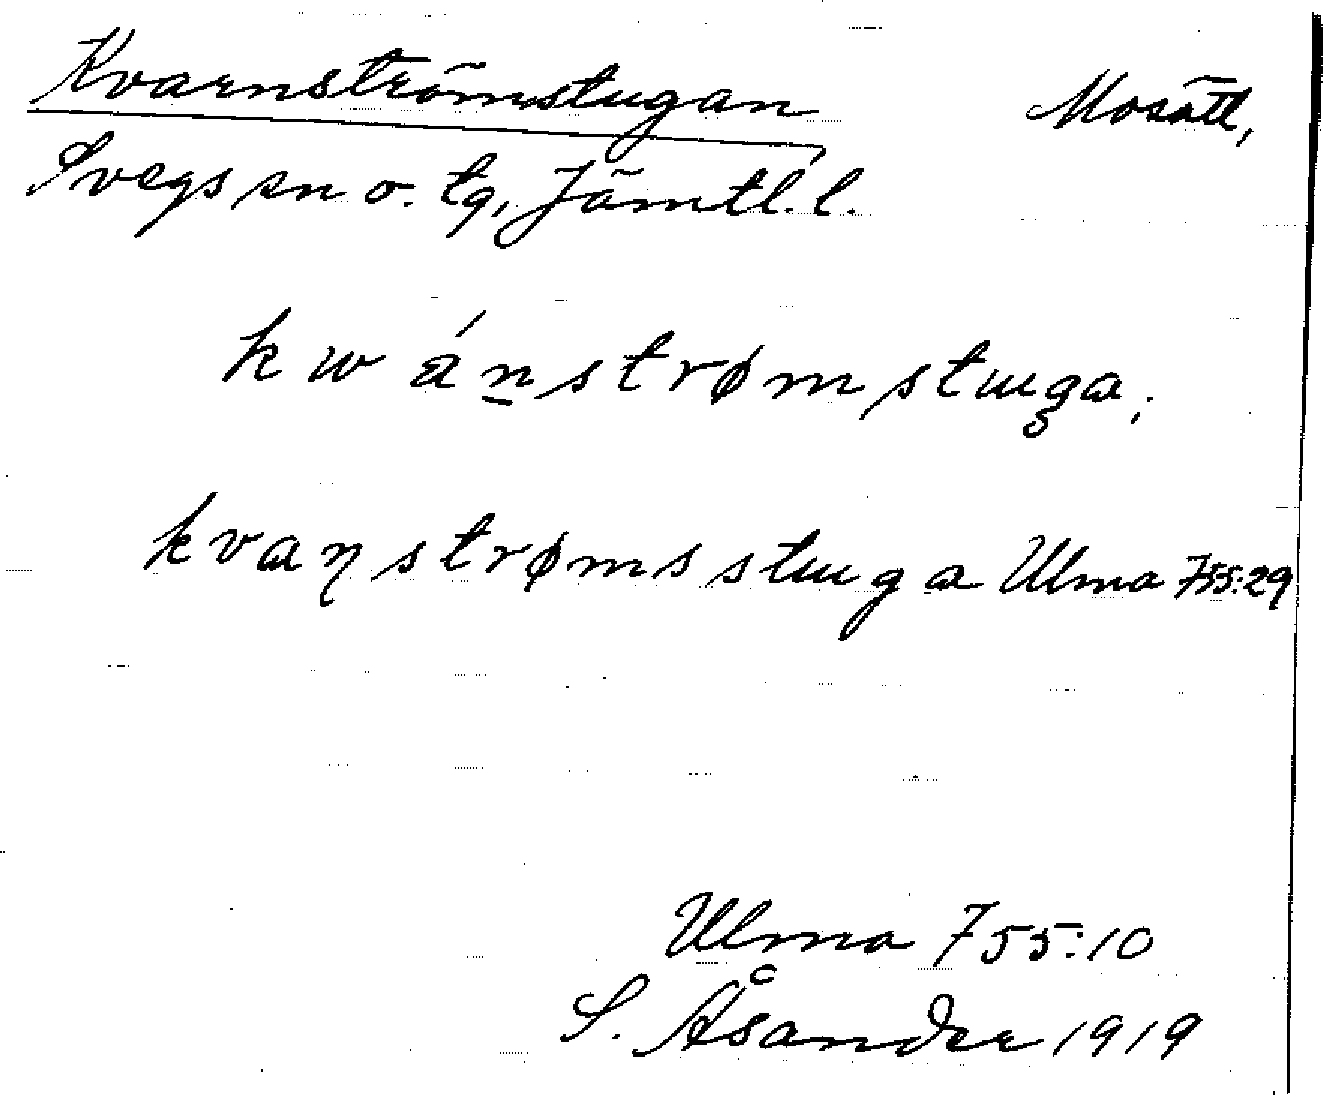 Kvarnströmstugan Mosätt,
Svegs sn o. tg, Jämtl. l.
kwánstrømstuga,
kvaŋstrømsstuga Ulma 755:29
Ulma 755:10
S. Åsander 1919